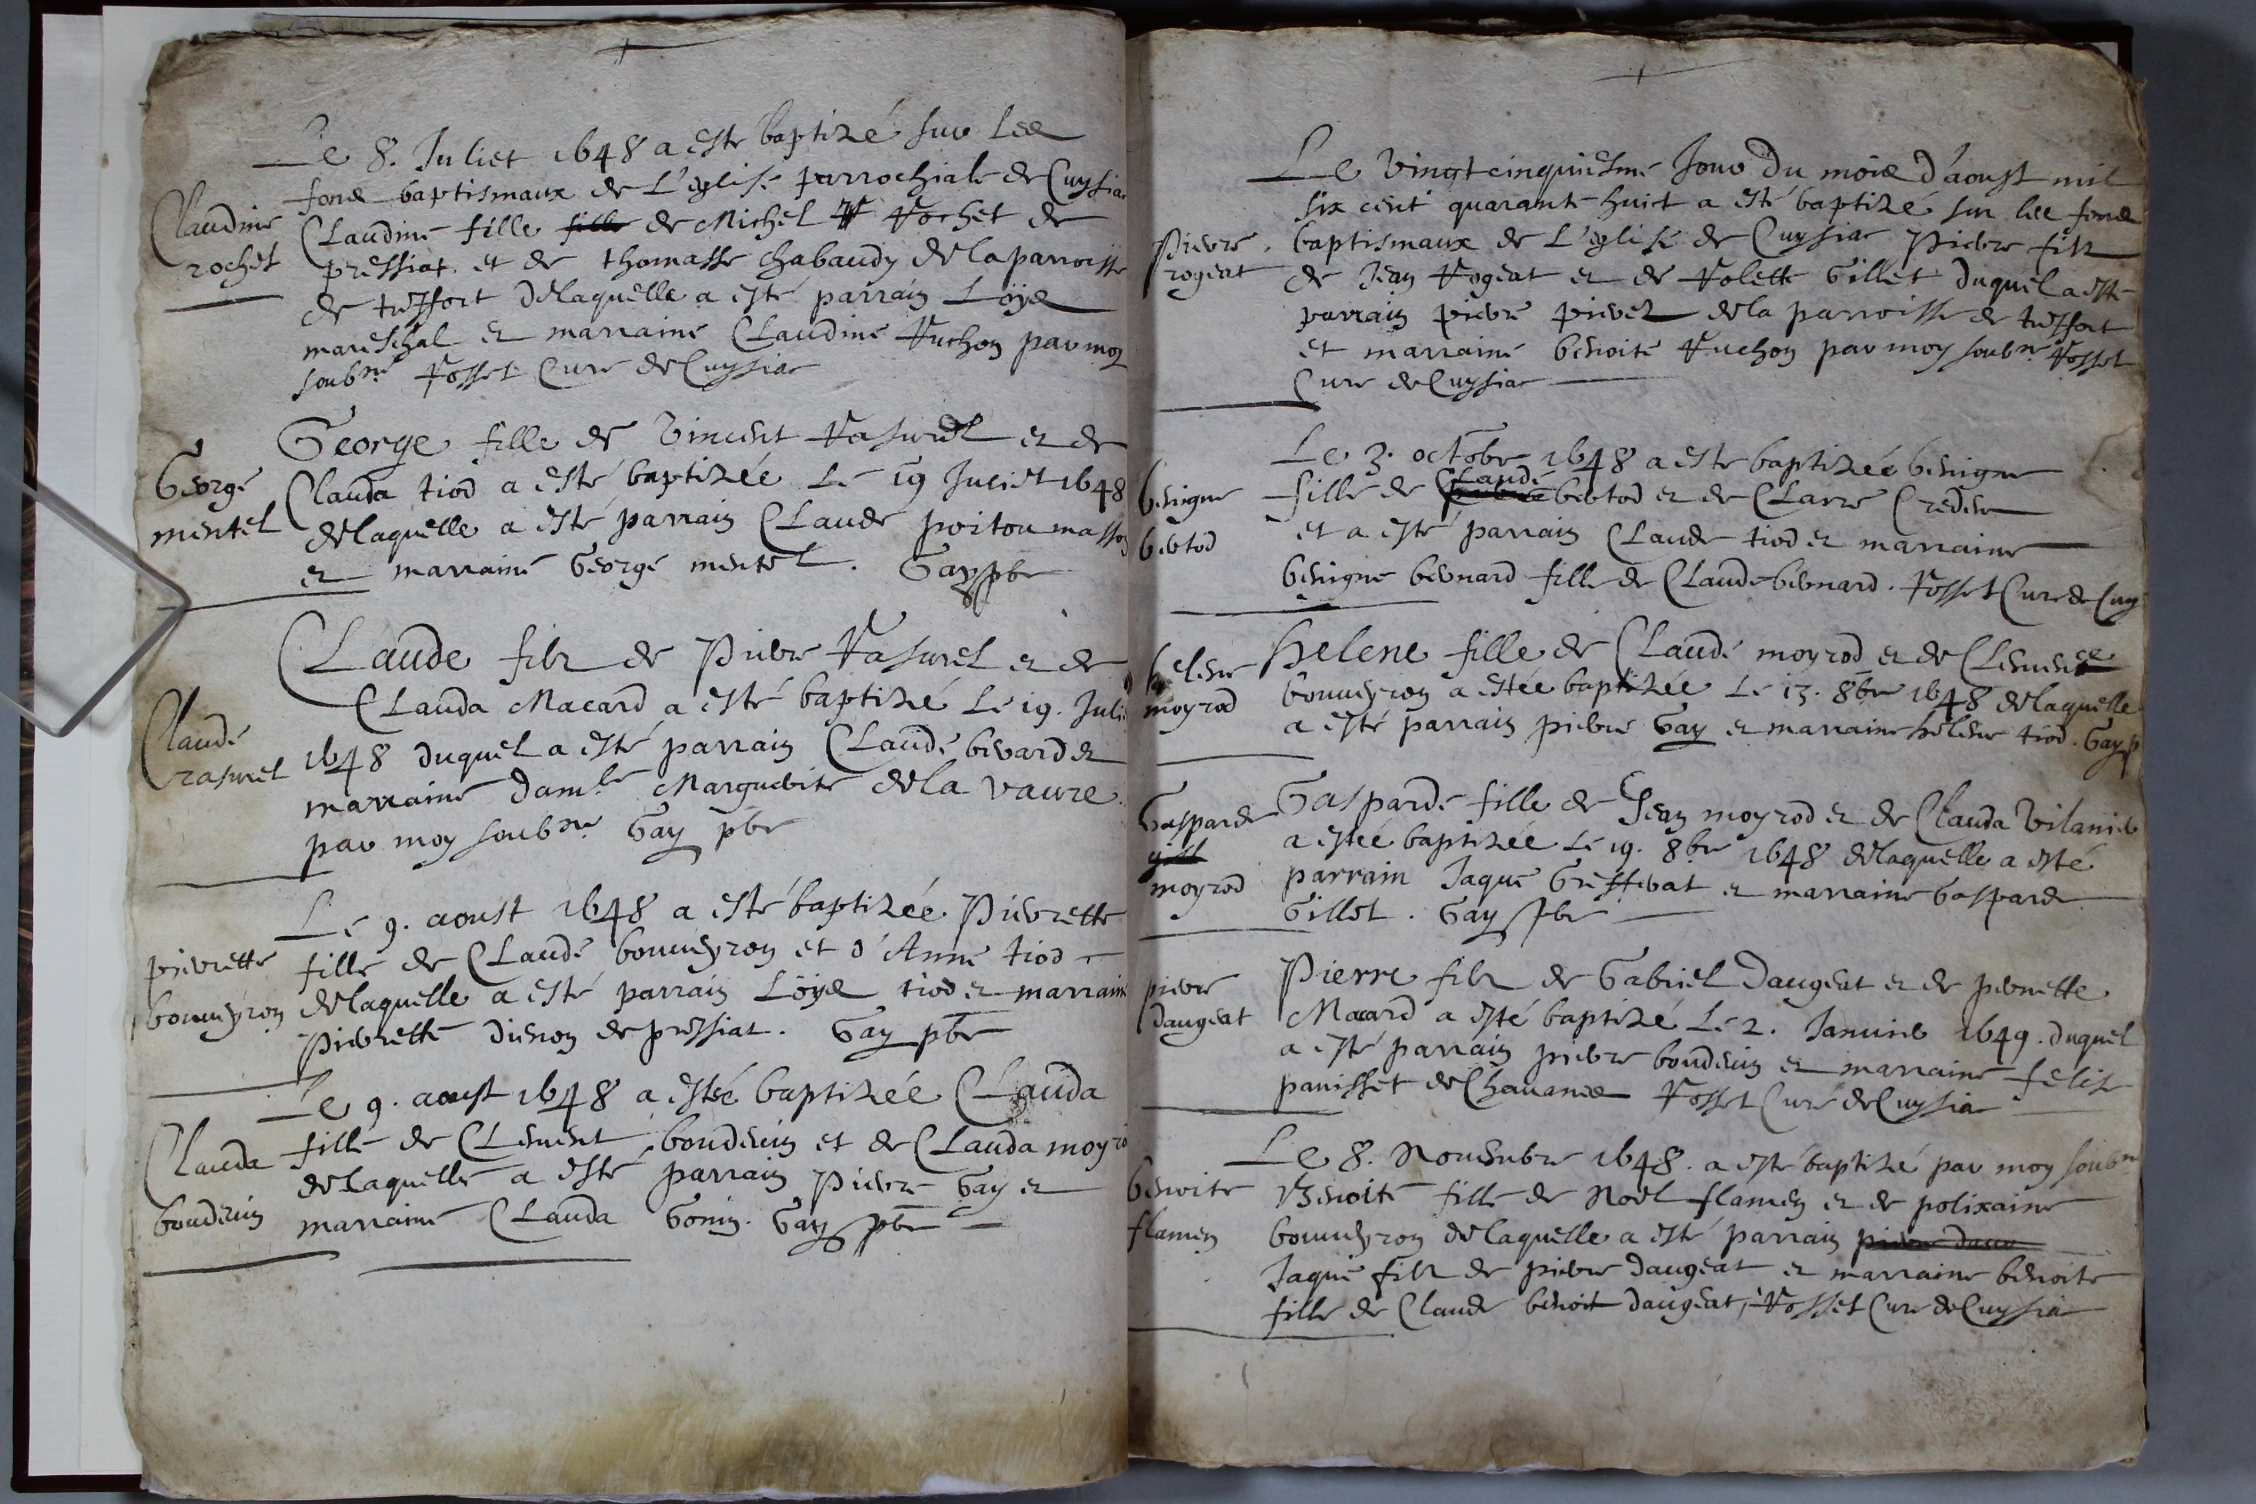 Le 8. Juliet 1648 a este baptizé sur les
fons baptismaux de L'eglise parrochiale de Cuysia
Claudine
rochet
Claudine fille fille de Michel R Rochet de
pressiat et de thomasse chabaudy de la parroisse
de treffort de laquelle a esté parrain Loÿs
mareschal et marraine Claudine Ruchon par moy
soubné Rosset Curé de Cuysia
George
mentel
George fille de Vincent Rasurel et de
Clauda tiod a esté baptizée Le 19 Juliet 1648
de laquelle a esté parrain Claude poitou masson
et marraine George mentel. Gay pbr
Claude
rasurel
Claude filz de Pierre Rasurel et de
Clauda Macard a esté baptizé Le 19. Julie
1648 duquel a esté parrain Claude berard et
marraine damle Marguerite de la vaure
par moy soubné Gay pbr
pierrette
bouueyron
Le 9. aoust 1648 a esté baptizée Pierrette
fille de Claude bouueyron et d'Anne tiod
de laquelle a esté parrain Loÿs tiod et marraine
Pierrette dienon de pressiat. Gay pbr
Clauda
bouderin
Le 9. aoust 1648 a estée baptizée Clauda
fille de Clement bouderin et de Clauda moyro
de laquelle a esté parrain Pierre Gay et
marraine Clauda Gonin. Gay pbr
Pierre
rogeat
Le Vingt cinquiesme Jour du mois d'aoust mil
six cent quarante huict a esté baptizé sur les fons
baptismaux de L'eglise de Cuysia Pierre filz
de Jean Rogeat et de Rolette Gillet duquel a este
parrain pierre pivet de la parroisse de treffort
et marraine benoite Ruchon par moy soubné Rosset
Cure de Cuysia
benigne
bertod
Le 3. octobre 1648 a este baptizée benigne
fille de Claude bertod et de Clarre Creden
et a esté parrain Claude tiod et marraine
benigne bernard fille de Claude bernard. Rosset Cure de Cuy
helene
moyrod
Helene fille de Claude moyrod et de Clemence
bouueyron a estée baptizée Le 13. 8bre 1648 de laquelle
a esté parrain pierre Gay et marraine helene tiod. Gay p
Gasparde
gill
moyrod
Gasparde fille de Jean moyrod et de Clauda Vilanier
a estée baptizée Le 19. 8bre 1648 de laquelle a esté
parrain Jaque Grefferat et marraine Gasparde
Gillet. Gay pbr
pierre
daugeat
Pierre filz de Gabriel Daugeat et de pernette
Macard a esté baptizé Le 2. Januier 1649. duquel
a esté parrain pierre bouderin et marraine felise
panisset de Chauanes Rosset Curé de Cuysia
benoite
flamen
Le 8. Nouembre 1648. a esté baptizé par moy soubné
Benoite fille de Noel flamen et de polixaine
bouueyron de laquelle a esté parrain pierre dau
Jaque filz de pierre daugeat et marraine benoite
fille de Claude benoit daugeat, Rosset Cure de Cuysia